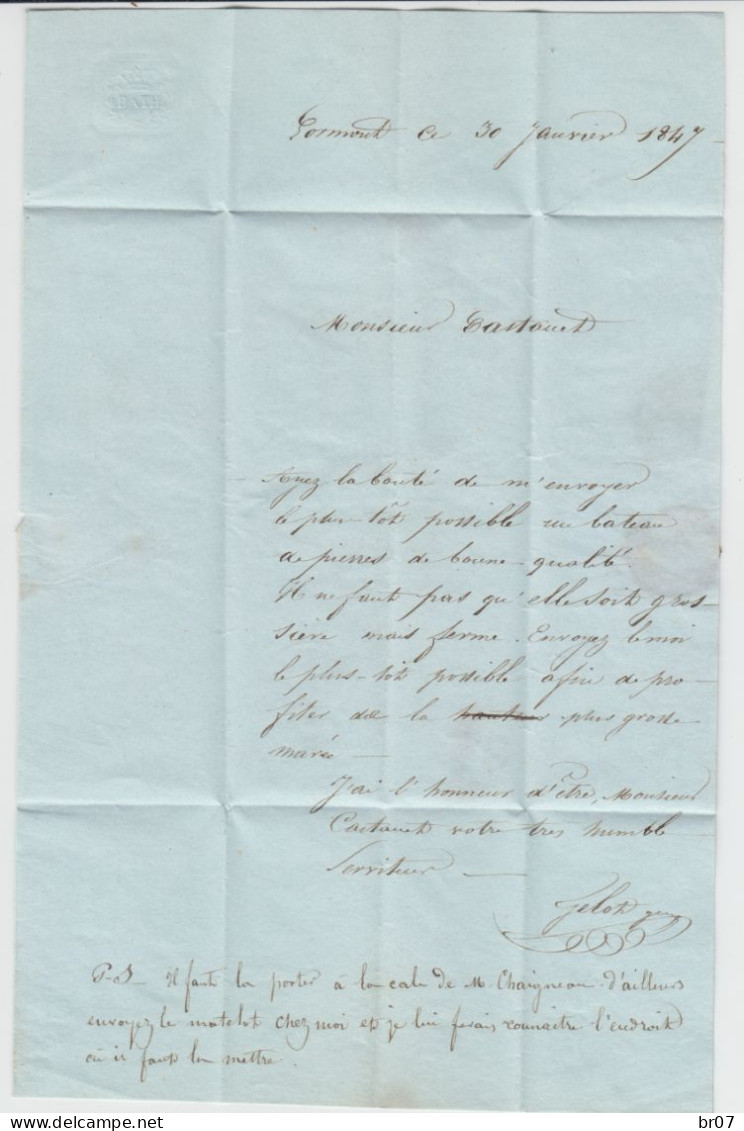 BATH
Lormont ce 30 Janvier 1847
Monsieur Castanet
Ayez la bonté de m'envoyer
le plus-tôt possible un bateau
de pierres de bonne qualité.
Il ne faut pas qu'elle soit gros-
sière mais ferme. Envoyez le moi
le plus-tôt possible afin de pro-
fiter de la hauteur plus grosse
marée
J'ai l'honneur d'être, Monsieur
Castanet votre tres humble
Serviteur
P-S Il faut la porter à la cale de M Chaigneau d'ailleurs
envoyez le matelot chez moi et je lui ferais connaitre l'endroit
où il faut la mettre.
br07